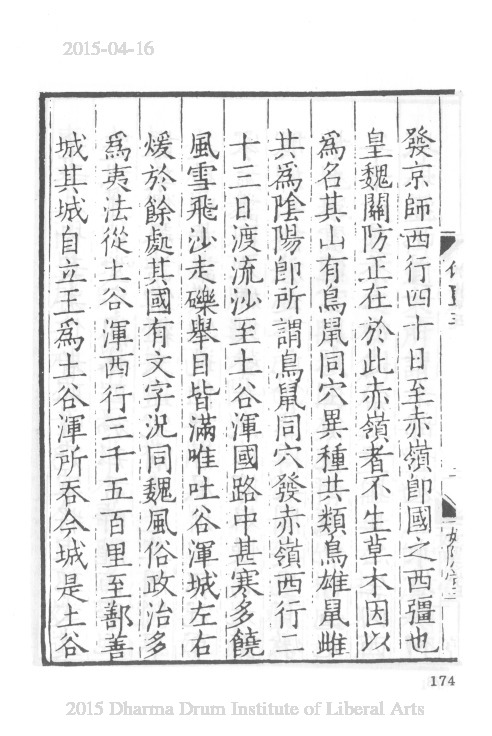 2015-04-16
發京師西行四十日至赤嶺卽國之西彊也
皇魏關防正在於此赤嶺者不生草木因以
爲名其山有鳥鼠同穴異種共類鳥雄鼠雌
共爲陰陽卽所謂鳥鼠同穴發赤嶺西行二
十三日渡流沙至土谷渾國路中甚寒多饒
風雪飛沙走礫舉目皆滿唯吐谷渾城左右
煖於餘處其國有文字況同魏風俗政治多
爲夷法從土谷渾西行三千五百里至鄯善
城其城自立王爲土谷渾所吞今城是土谷
174
2015 Dharma Drum Institute of Liberal Arts